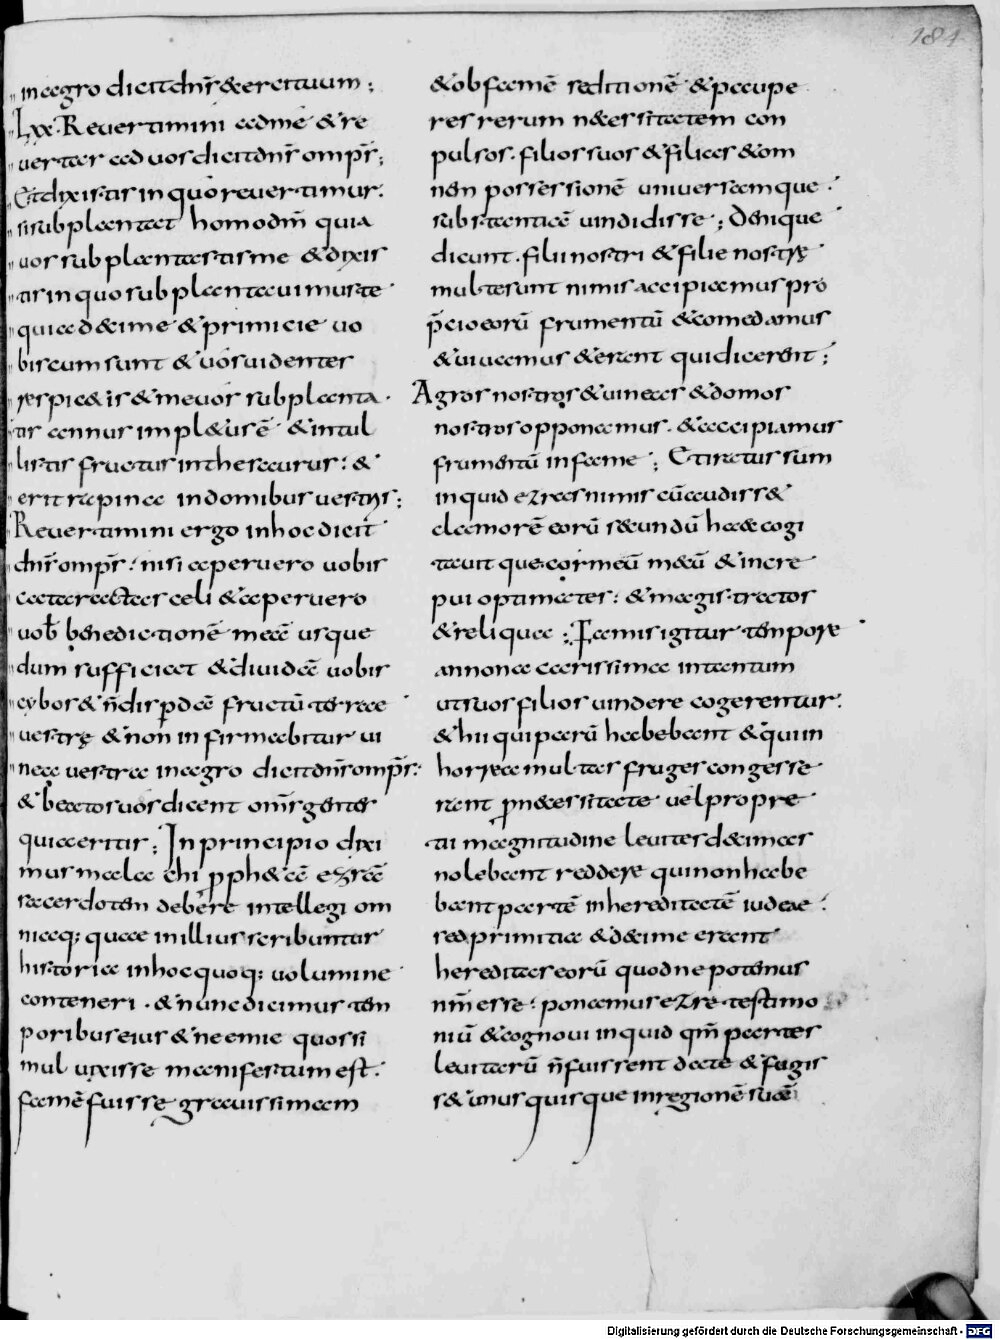 181
in agro dicit dn̄s exercituum ;
Lxx. Revertimini ad me & re
vertar ad vos dicit dn̄s omp̄s ;
Et dixistis in quo revertimur.
si subplantat homo dm̄ quia
vos subplantastis me & dixis
tis in quo subplantavimus te
quia decime & primicie vo
biscum sunt & vos videntes
respicetis & me vos subplanta.
tis annus impletus ē & intul
listis fructus in thesaurus : &
erit rapina in domibus vestris ;
Revertimini ergo in hoc dicit
dn̄s omp̄s : nisi aperuero vobis
cataractas celi & aperuero
vob̄ benedictionē meā usque
dum sufficiat & dividā vobis
cybos & n̄ disp̱dā fructū terrae
vestrę & non infirmabitur vi
nea vestra in agro dicit dn̄s omp̄s :
& beatos vos dicent om̄s gentes
quia eritis ; In principio dixi
mus malachi p̱ph&ā ezrā
sacerdotem debere intellegi om
niaq; quae in illius scribuntur
historia in hoc quoq; volumine
conteneri . & nunc dicimus tem
poribus eius & neemie quos si
mul vixisse manifestum est.
famē fuisse gravissimam
& ob famē seditionē & paupe
res rerum necessitatem con
pulsos . filios suos & filias & om
nem possessionē universamque .
substantiā vindidisse ; Denique
dicunt . filii nostri & filie nostrę
multe sunt nimis accipiamus pro
p̄cio eorū frumentū & comedamus
& vivamus & erant qui dicerent ;
Agros nostros & vineas & domos
nostros opponamus . & accipiamus
frumentū in fame ; Et iratus sum
inquid ezras nimis cū audiss&
clamorē eorū secundū haec & cogi
tavit que cor meū mecū & incre
pui optimates : & magistratos
& reliqua ; Famis igitur tempore
annona carissima in tantum
ut suos filios vindere cogerentur.
& hii qui parū habebant & qui in
horrea multas fruges congesse
rant p̱ necessitate vel propre
tii magnitudine levites decimas
nolebant reddere qui non habe
bant partē in hereditatē iudeae :
sed primitiae & decime erant
hereditas eorū quod ne potenus
nm̄ esse : ponamus ezre testimo
niū & cognovi inquid qm̄ partes
levitarū n̄ fuissent date & fugis
s& unusquisque in regionē suā
Digitalisierung gefördert durch die Deutsche Forschungsgemeinschaft - DFG